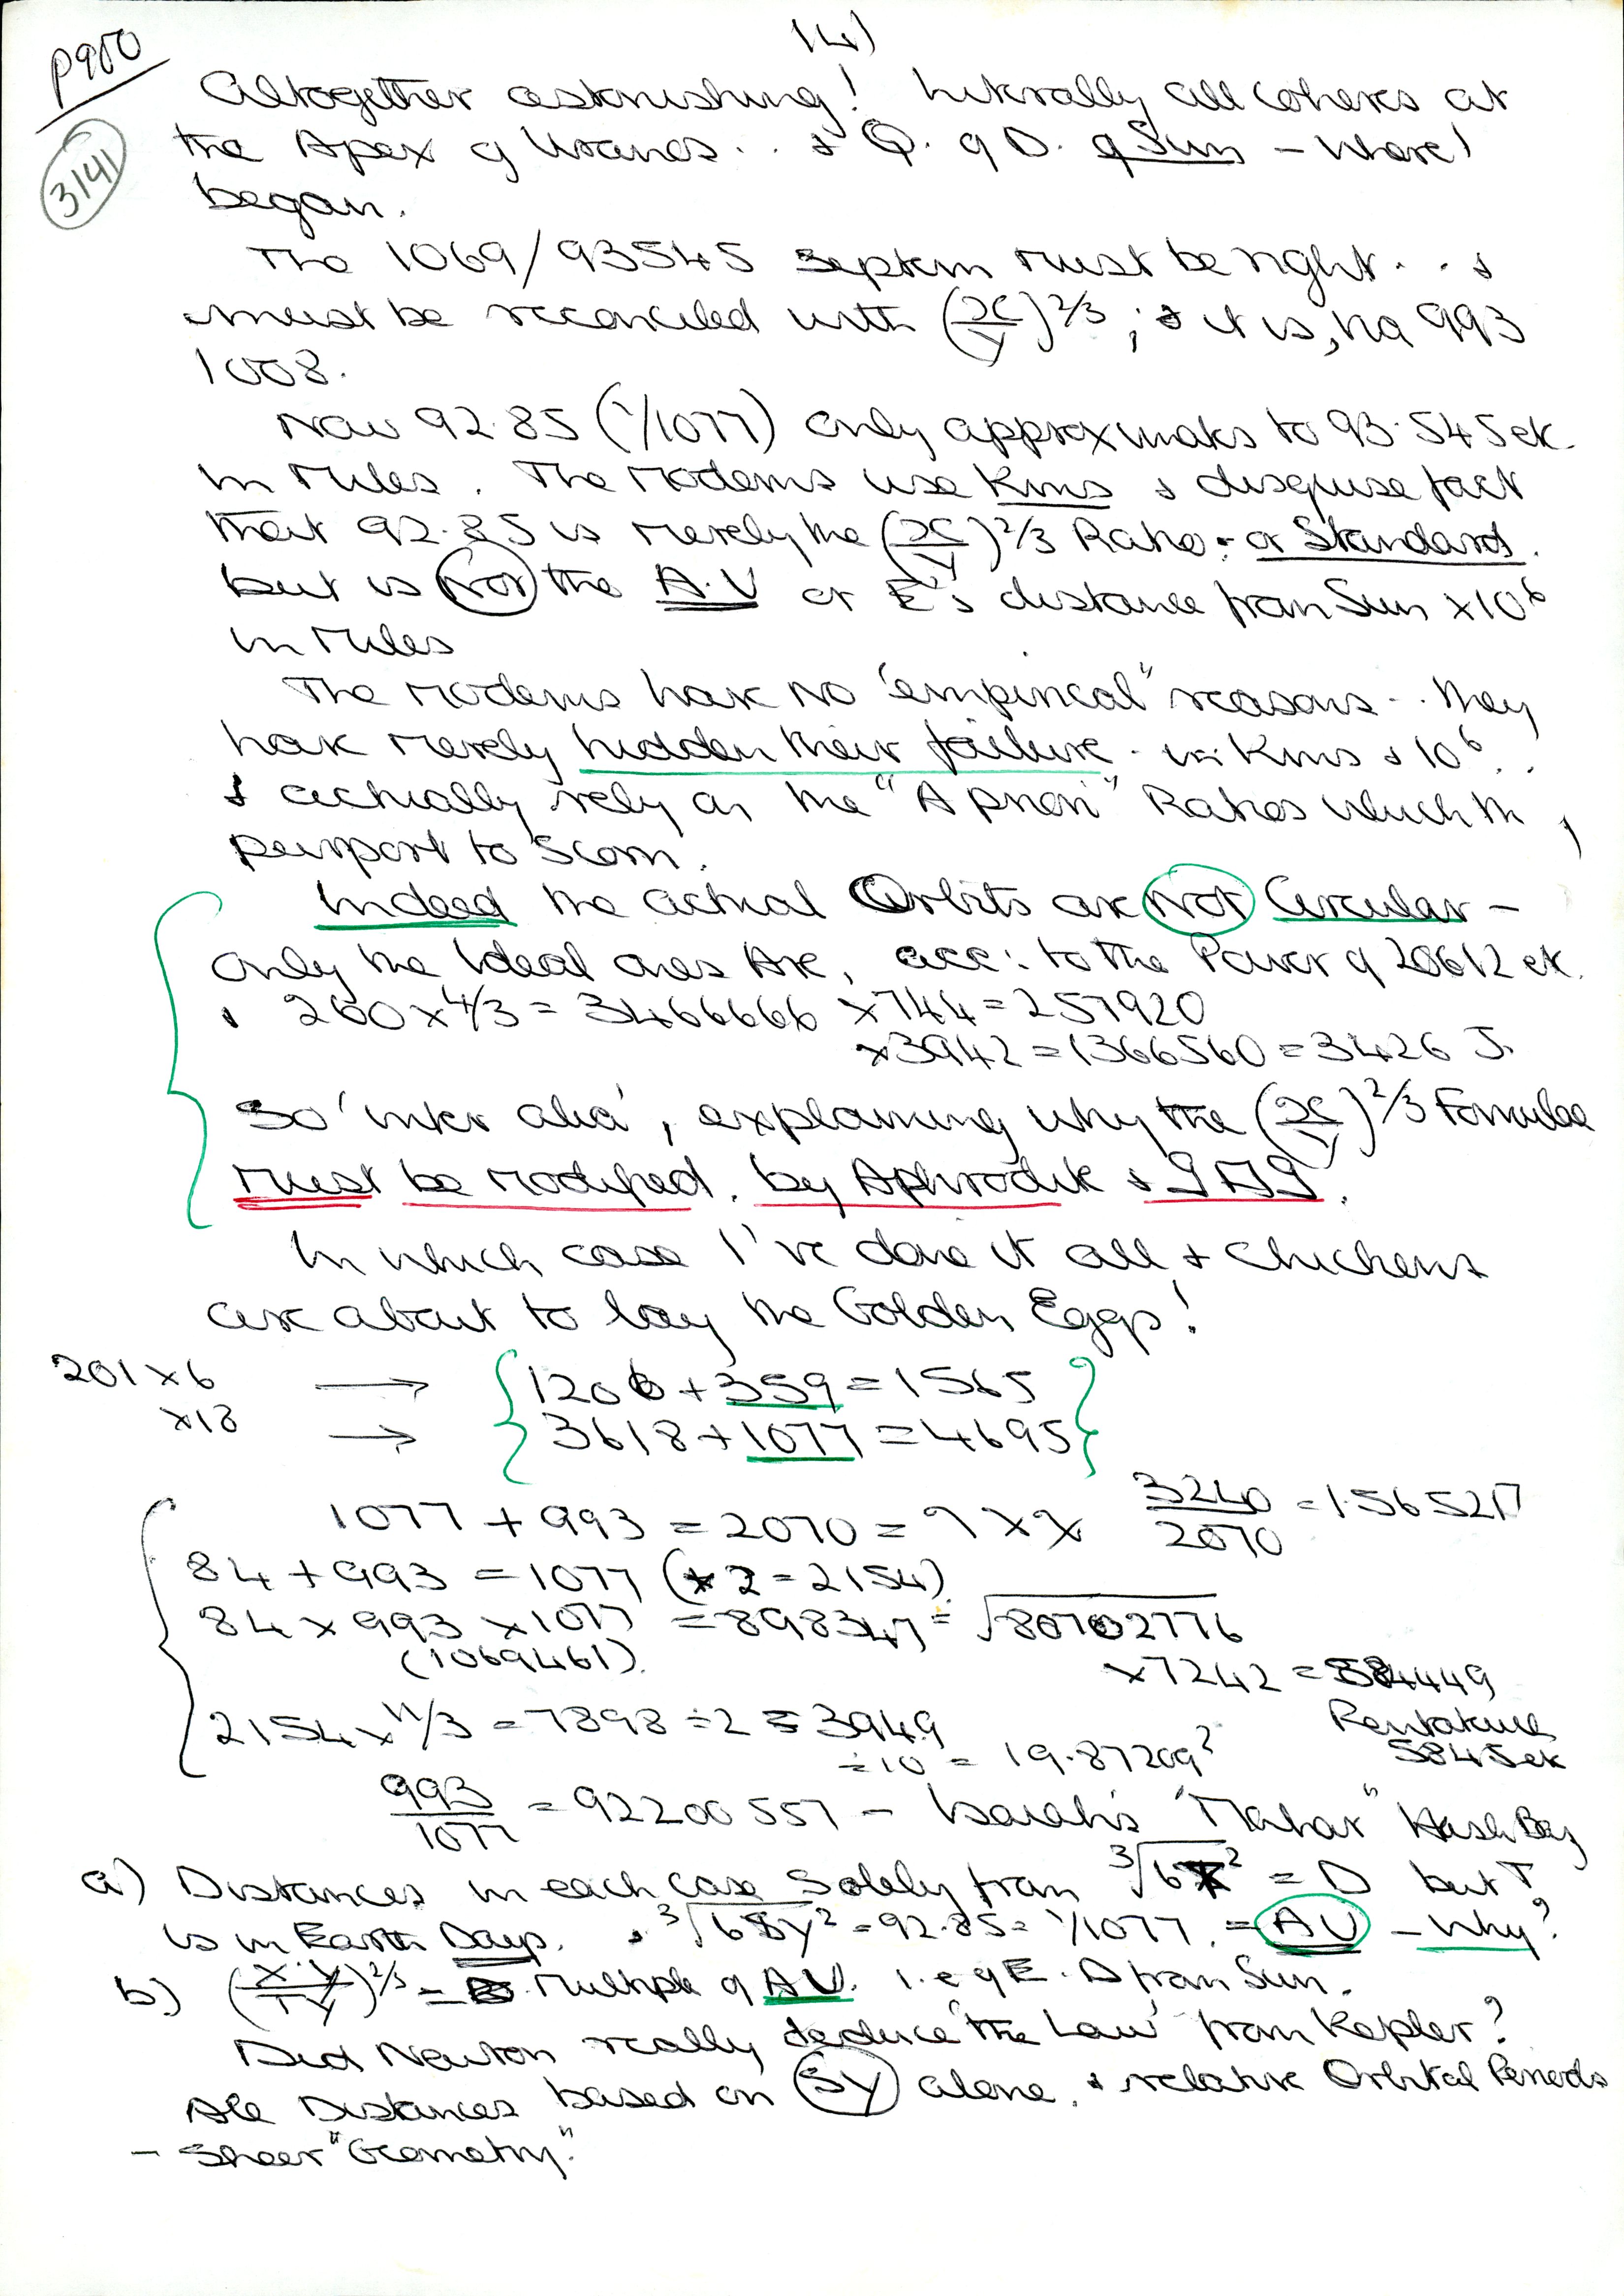 14)
P950
3141
Altogether astonishing! Literally all coheres at
the Apex of Uranus.. & Q. of D. of Sun – where I
began.
The 1069/93545 septem must be right... &
must be reconciled with (x/y)^2/3 ; & it is, via 993
1008.
Now 92.85 (1/1077) only approximates to 93.545 etc.
in Miles. The Moderns use Kms & disguise fact
that 92.85 is merely the (x/y)^2/3 Ratio: or Standard.
but is NOT the A.U or E's distance from Sun x10^6
in Miles
The Moderns have NO "empirical" reasons... they
have merely hidden their failure - in Kms & 10^6..
& actually rely on the "A priori" Ratios which th
purport to Scorn.
Indeed the actual Orbits are NOT Circular –
only the Ideal ones Are, acc: to the Power of 20612 etc.
& 260 x 4/3 = 3466666 x 744 = 257920
x3942 = 1366560 = 3426 J.
So 'inter alia', explaining why the (x/y)^2/3 Formulae
must be modified. by Aphrodite &
In which case I've done it all & Chickens
are about to lay the Golden Eggs!
201 x 6 → {1206 + 359 = 1565}
x18 → {3618 + 1077 = 4695}
1077 + 993 = 2070 = ? x x 3240/2070 = 1.565217
84 + 993 = 1077 (x 2 = 2154)
84 x 993 x 1077 = 898347 = √80702776
(1069461). x7242 = 584449
2154 x 11/3 = 7898 ÷ 2 = 3949 Pentateuch
÷10 = 19.87209² 5845 etc
993/1077 = 92200557 – Isaiah's "Mahar" Hash Baz
a) Distances in each case Solely from ³√6T² = D but T
is in Earth Days. & ³√6SY² = 92.85 = 1/1077. = AU – Why?
b) (X.Y/TY)^2/3 = Multiple of AU. i.e of E. D from Sun.
Did Newton really deduce 'the Law' from Kepler?
All Distances based on SY alone, & relative Orbital Periods
– Sheer "Geometry".